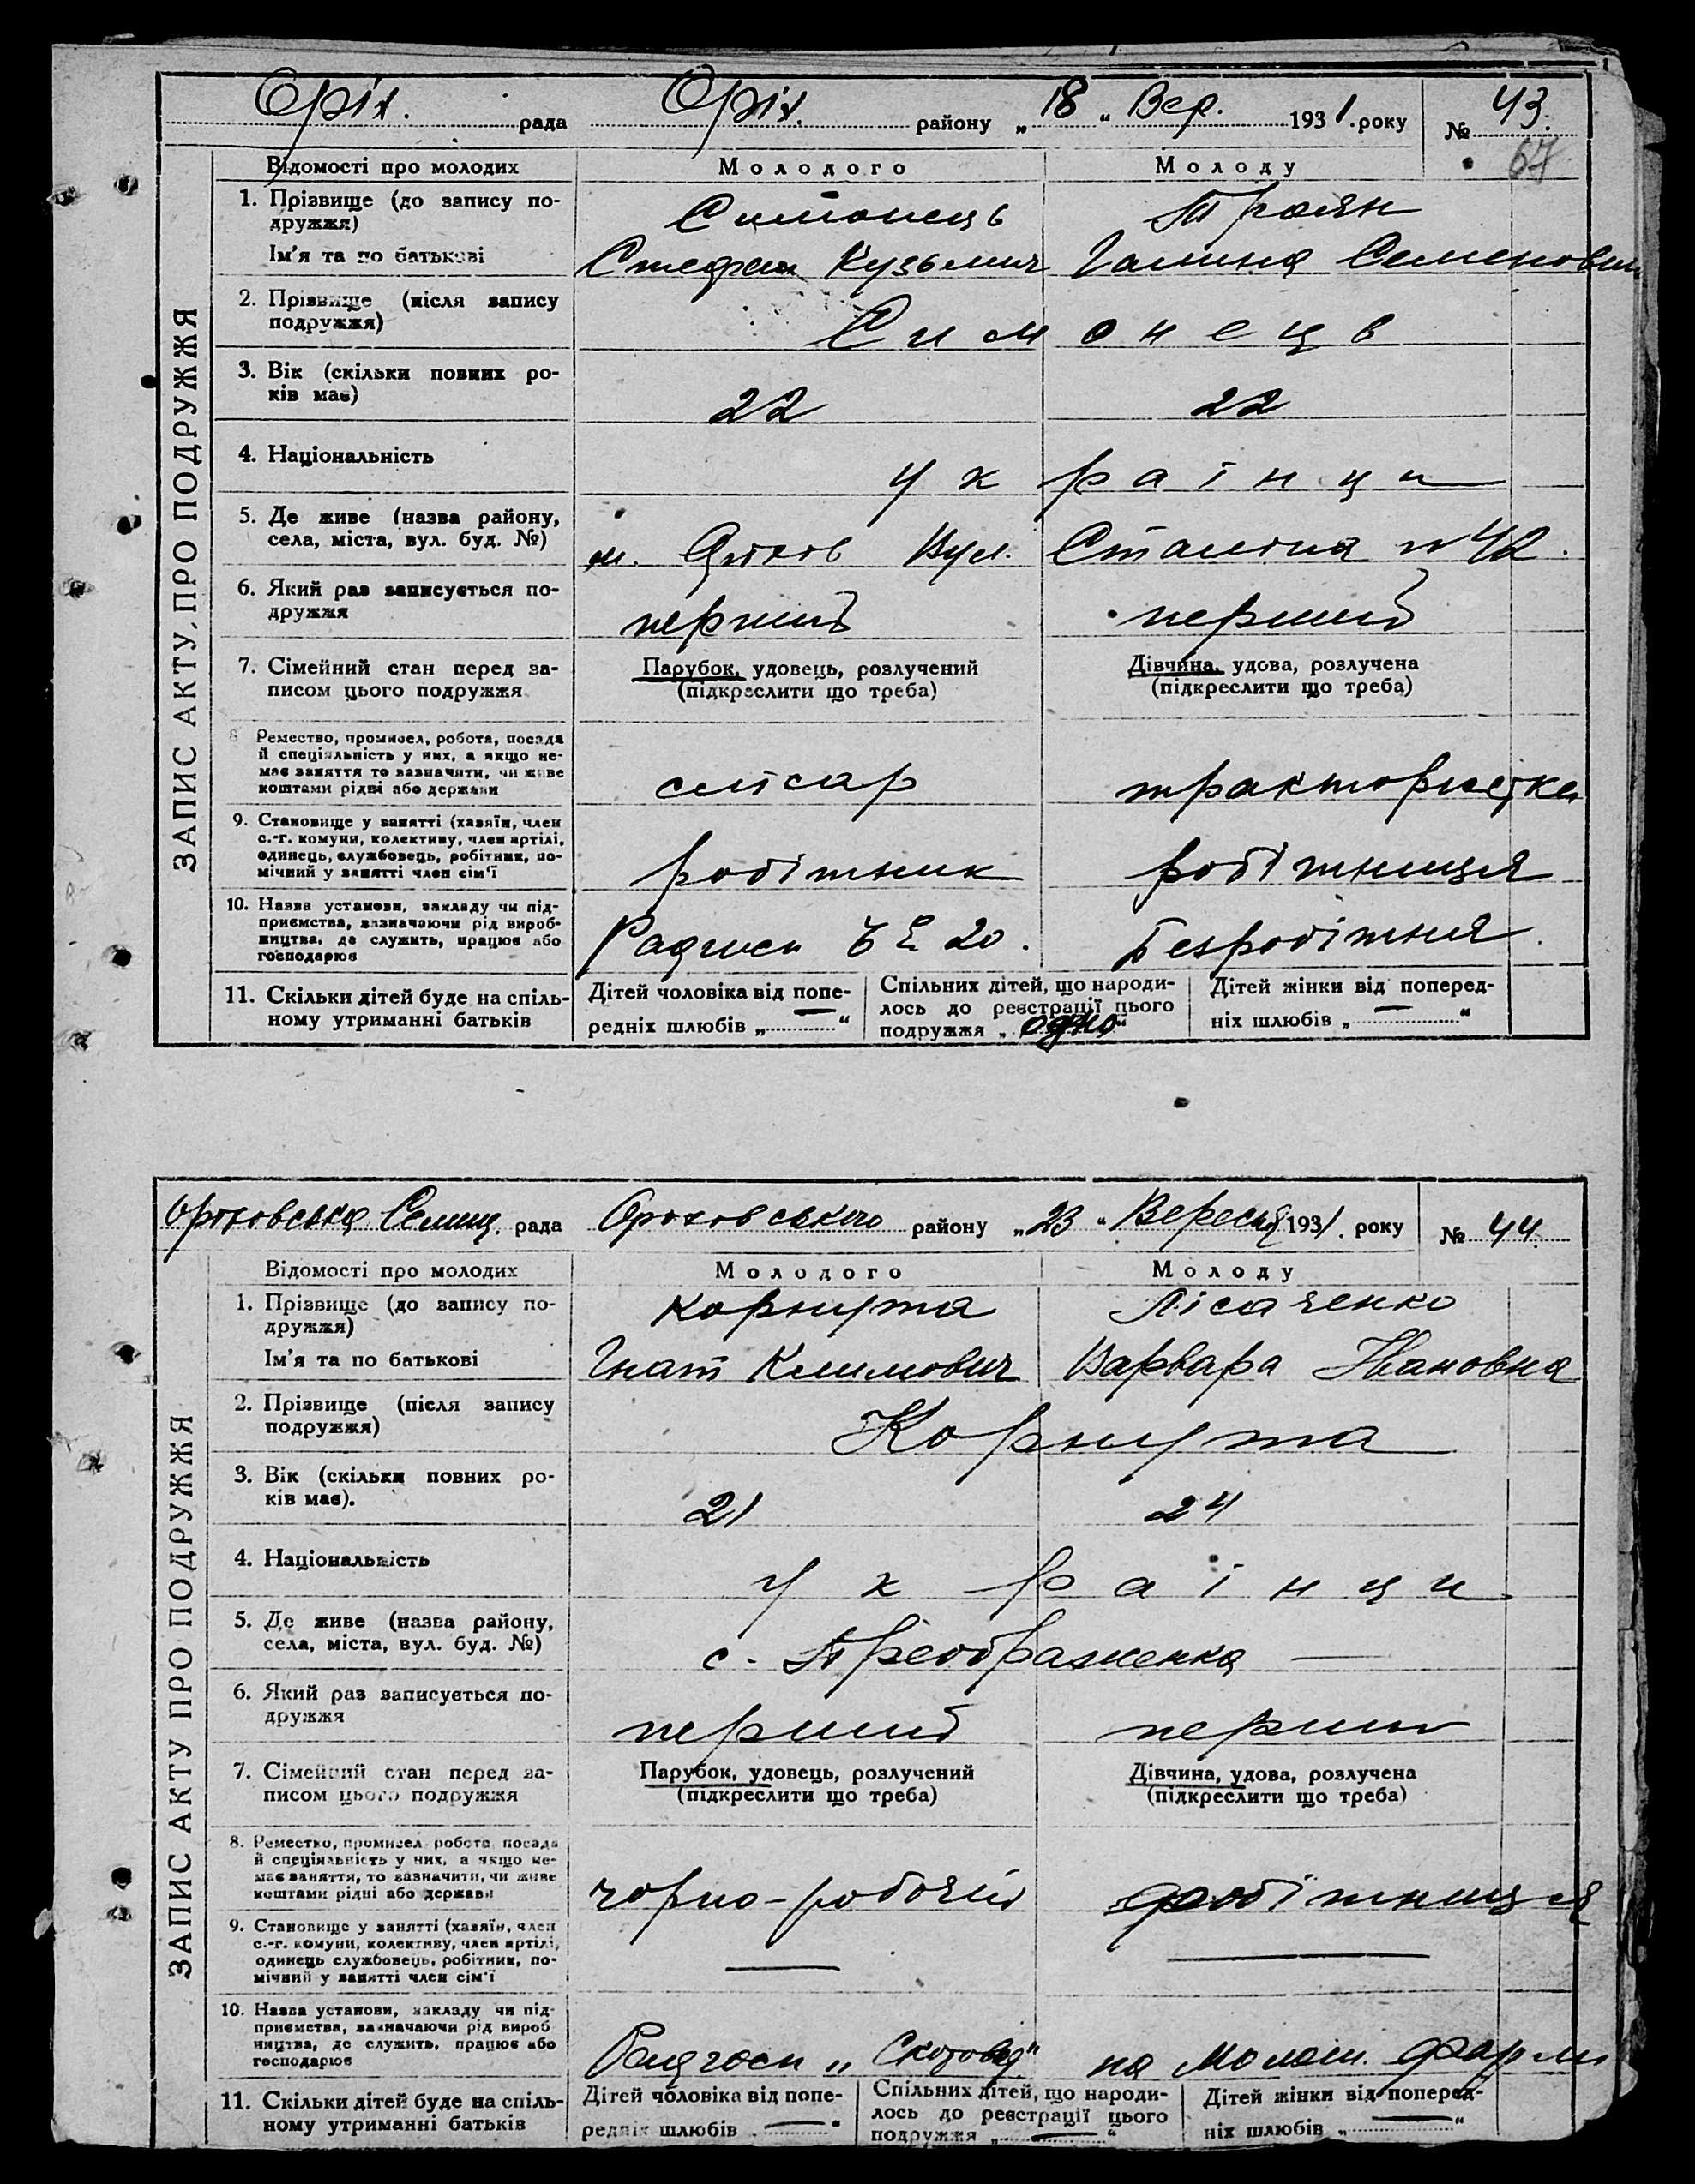 Оріх. рада Оріх. району „18" Вер. 1931. року № 43.
67
ЗАПИС АКТУ ПРО ПОДРУЖЖЯ
Відомості про молодих Молодого Молоду
1. Прізвище (до запису по- Симонець Троян
дружжя)
Ім'я та по батькові Стефан Кузьмич Галина Семеновна
2. Прізвище (після запису Симонець
подружжя)
3. Вік (скільки повних ро- 22 22
ків має)
4. Національність українци
5. Де живе (назва району, м. Оріхов Вул. Сталіна № 42.
села, міста, вул. буд. №)
6. Який раз записується по- перший перший
дружжя
7. Сімейний стан перед за- Парубок, удовець, розлучений Дівчина, удова, розлучена
писом цього подружжя (підкреслити що треба) (підкреслити що треба)
8 Ремество, промисел, робота, посада
й спеціяльність у них, а якщо не-
має заняття то зазначити, чи живе слісар трактористка
коштами рідні або держави
9. Становище у занятті (хазяїн, член
с.-г. комуни, колективу, член артілі,
одинець, службовець, робітник, по- робітник робітниця
мічний у занятті член сім'ї
10. Назва установи, закладу чи під-
приємства, зазначаючи рід вироб-
ництва, де служить, працює або 20. Безробітня.
господарює
11. Скільки дітей буде на спіль- Дітей чоловіка від попе- Спільних дітей, що народи- Дітей жінки від поперед-
ному утриманні батьків редніх шлюбів „ — " лось до реєстрації цього ніх шлюбів „ — "
подружжя „ одно "
Оріховська Селищ. рада Оріховського району „23" Вересня 1931. року № 44.
ЗАПИС АКТУ ПРО ПОДРУЖЖЯ
Відомості про молодих Молодого Молоду
1. Прізвище (до запису по- Корнута Лісаченко
дружжя)
Ім'я та по батькові Гнат Климович Варвара Івановна
2. Прізвище (після запису Корнута
подружжя)
3. Вік (скільки повних ро- 21 24
ків має).
4. Національність українци
5. Де живе (назва району, с. Преображенка —
села, міста, вул. буд. №)
6. Який раз записується по- перший перший
дружжя
7. Сімейний стан перед за- Парубок, удовець, розлучений Дівчина, удова, розлучена
писом цього подружжя (підкреслити що треба) (підкреслити що треба)
8. Ремество, промисел, робота, посада
й спеціяльність у них, а якщо не-
має заняття, то зазначити, чи живе чорно-робочий робітниця
коштами рідні або держави
9. Становище у занятті (хазяїн, член
с.-г. комуни, колективу, член артілі,
одинець службовець, робітник, по- — —
мічний у занятті член сім'ї
10. Назва установи, закладу чи під-
приємства, зазначаючи рід вироб
ництва, де служить, працює або Радгосп „Скотовод" на Молош. фармі
господарює
11. Скільки дітей буде на спіль- Дітей чоловіка від попе- Спільних дітей, що народи- Дітей жінки від поперед-
ному утриманні батьків редніх шлюбів — " лось до реєстрації цього ніх шлюбів „ — "
подружжя „ — "